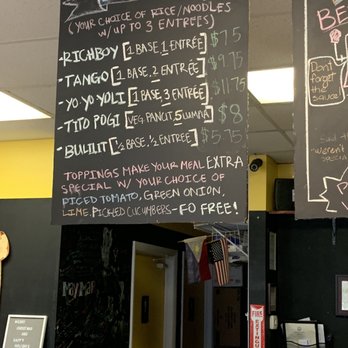 (YOUR CHOICE OF RICE/NOODLES
W/UP TO 3 ENTREES)
-RICHBOY [1 BASE 1 ENTRÉE] $7.5
-TANGO [1 BASE, 2 ENTRÉE] $9.75
-YO YO YOLI [1 BASE, 3 ENTREE] $11.75
-TITO POGI [VEG PANCIT, 5 LUMPIA] $8
-BULILIT [½ BASE, ½ ENTREE] $5.75
TOPPINGS MAKE YOUR MEAL EXTRA
SPECIAL W/ YOUR CHOICE OF
DICED TOMATO, GREEN ONION,
LIME, PICKLED CUCUMBERS - FO FREE!
BE
Don't
forget
the
sauce
weren't
FIRE